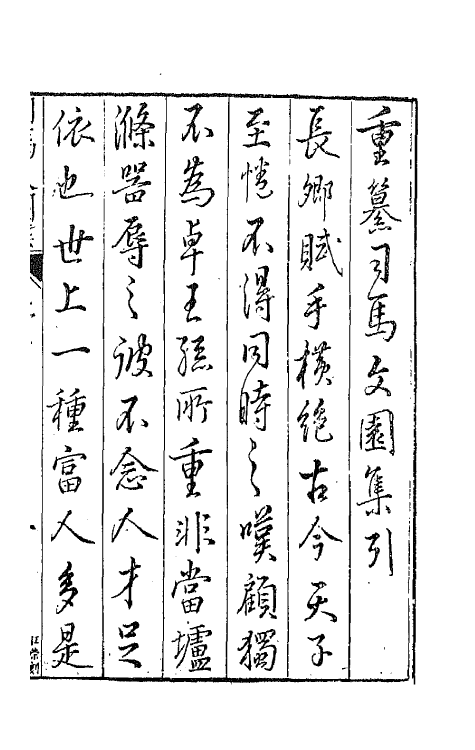 重纂司馬文園集引
長卿賦手橫絕古今天子
至惓不得同時之嘆顧獨
不為卓王孫所重非當壚
滌器辱之彼不念人才足
依也世上一種富人多是